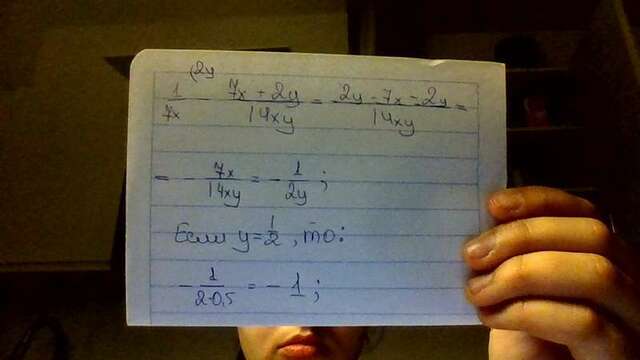 (2y
1/7x - (7x + 2y)/14xy = (2y - 7x - 2y)/14xy =
= - 7x/14xy = - 1/2y ;
Если y = 1/2 , то:
- 1/(2·0,5) = - 1 ;